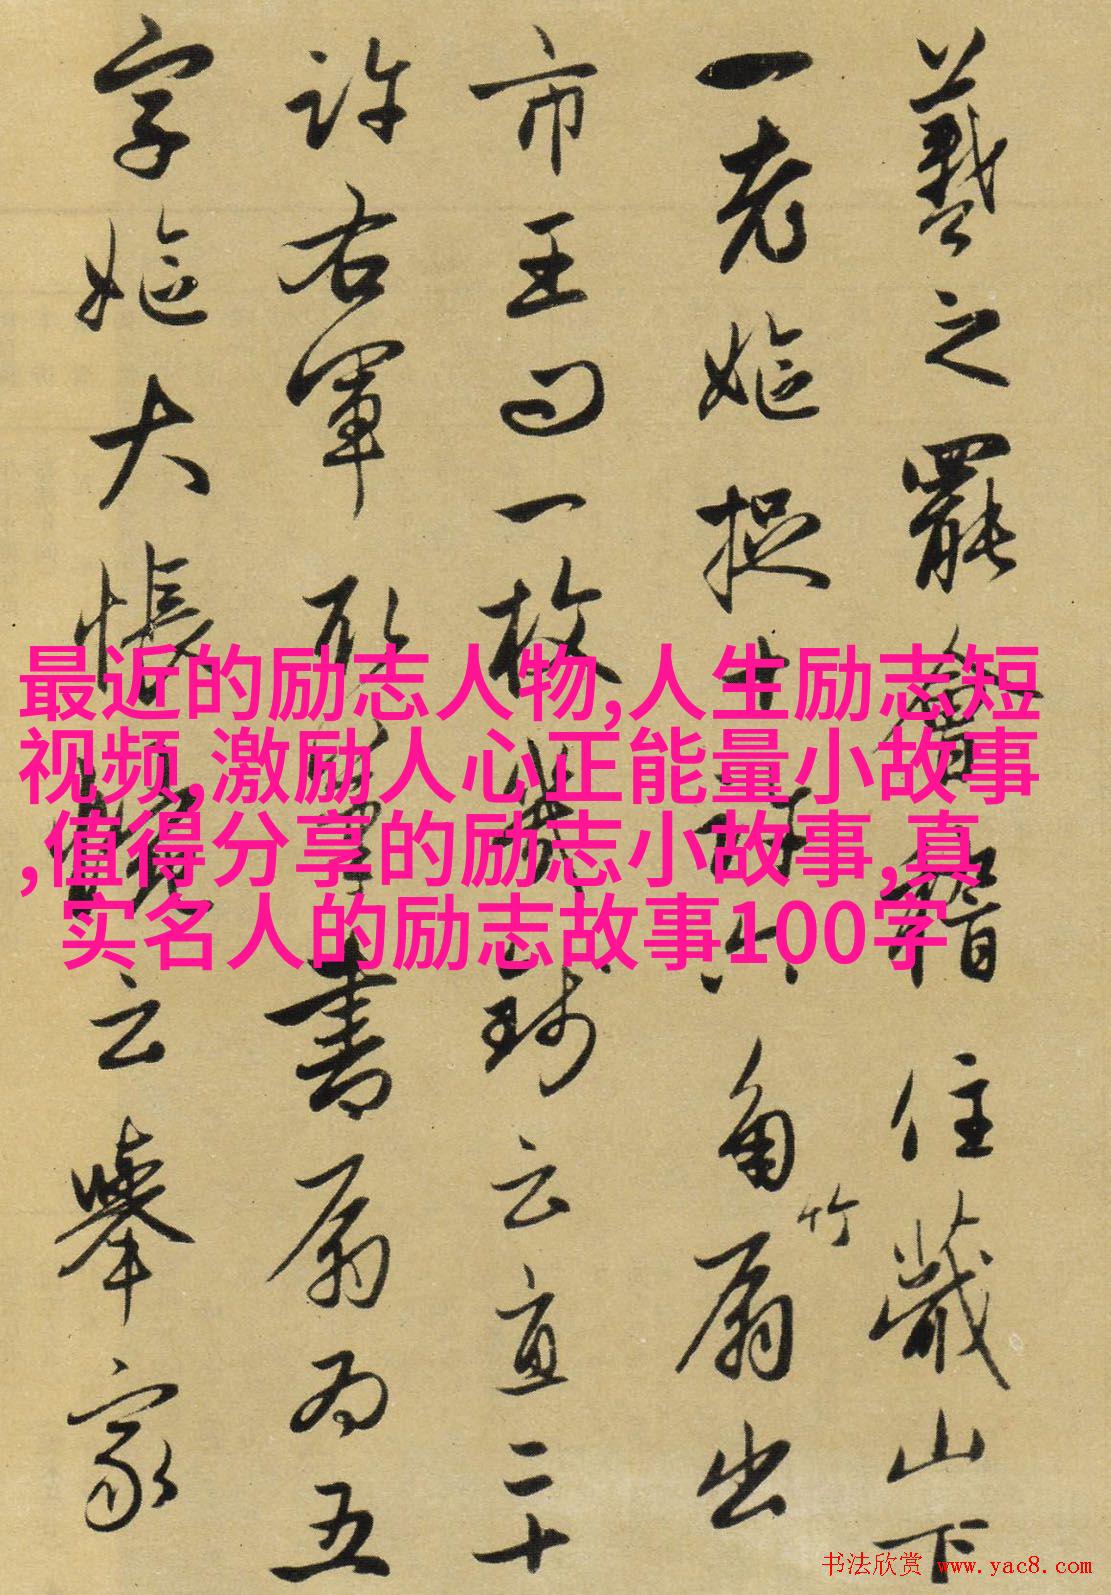 羲之罷會稽住蕺山下
一老嫗捉十許六角竹扇出
市王問一枚幾錢云直二十
許右軍取筆書扇為五
字嫗大悵惋云舉家
最近的励志人物,人生励志短
视频,激励人心正能量小故事
,值得分享的励志小故事,真
实名人的励志故事100字
书法欣赏 www.yac8.com